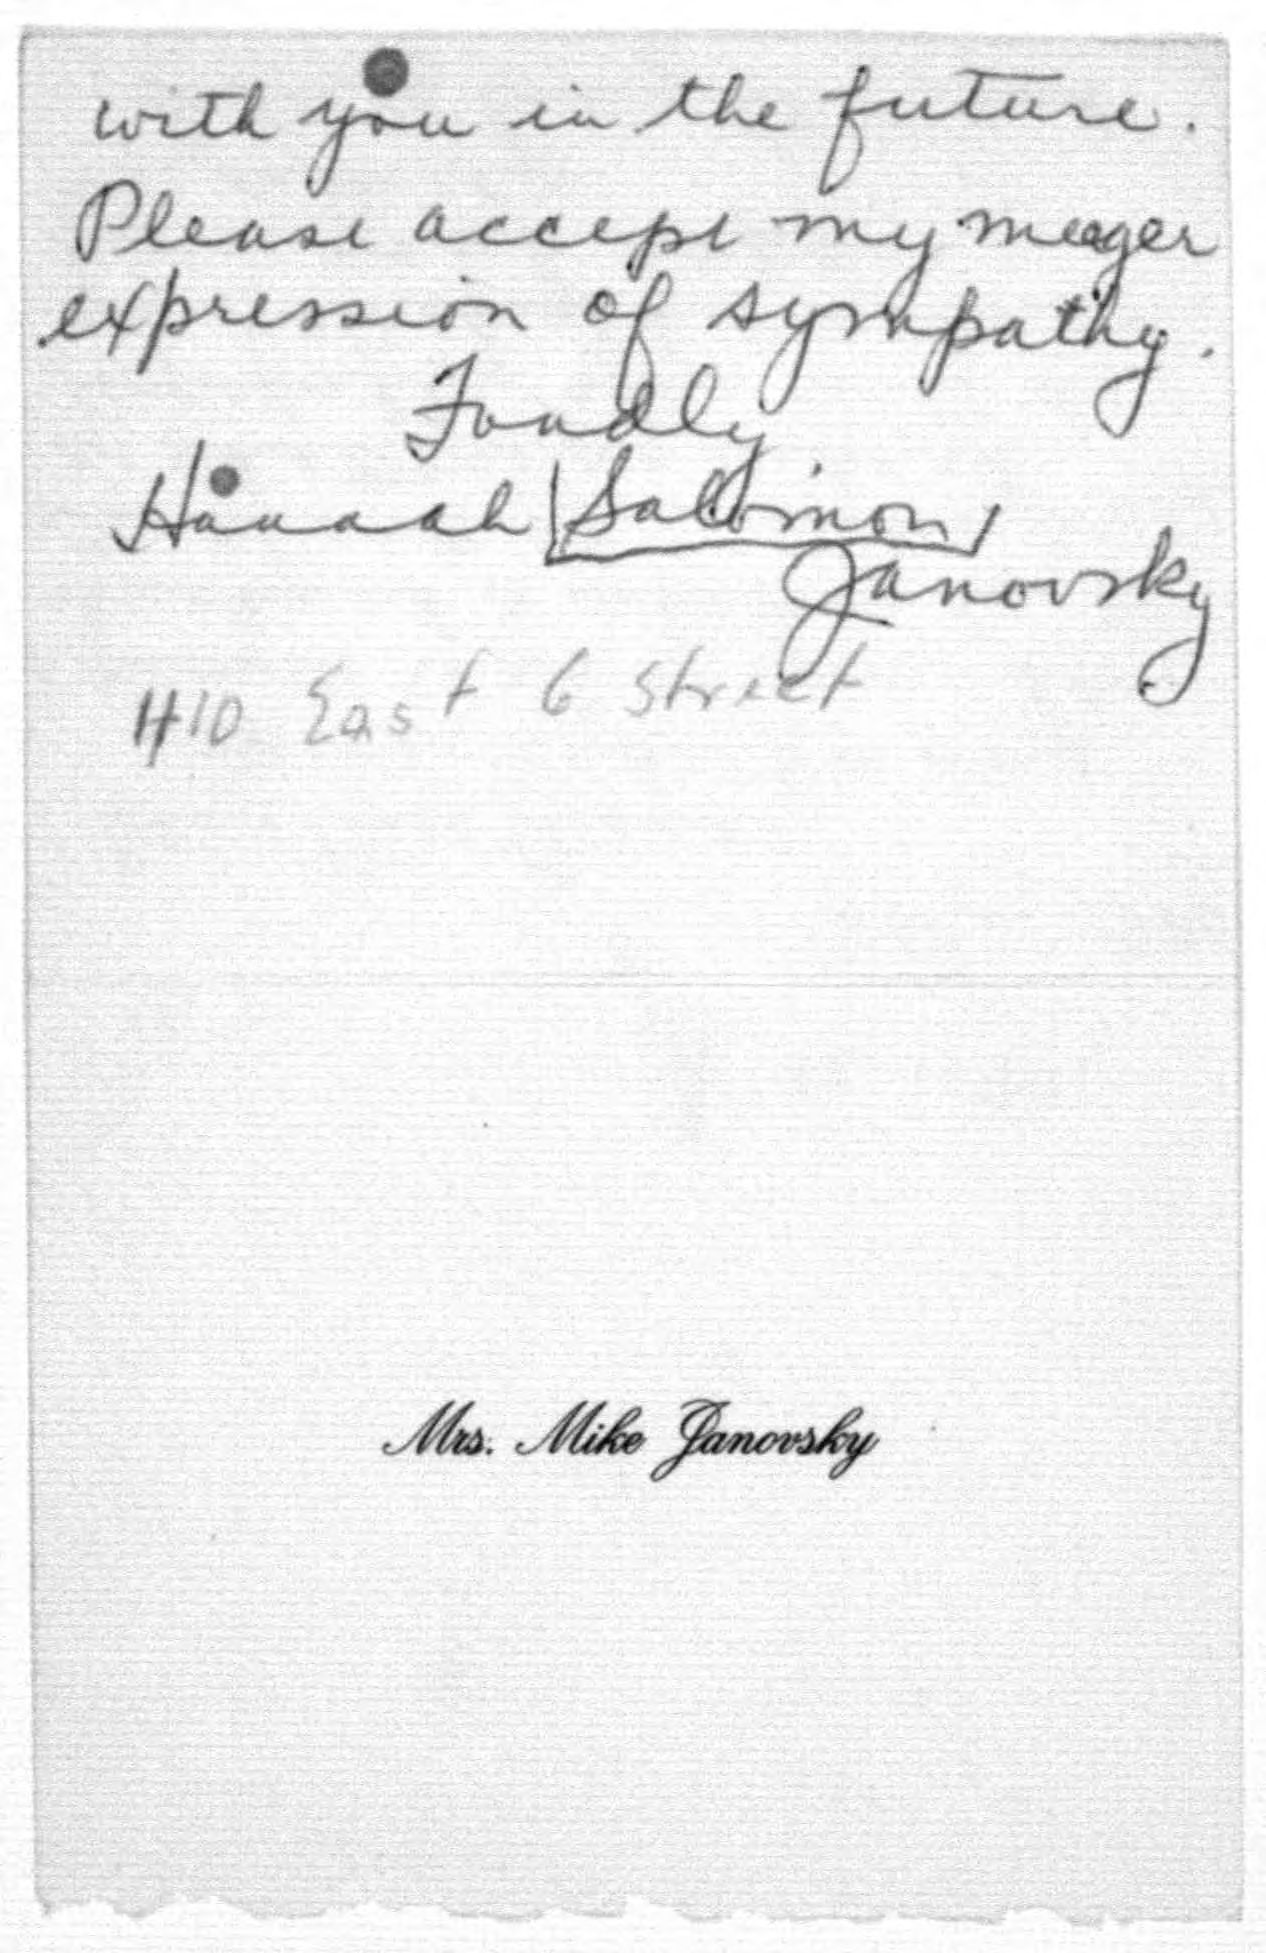 with you in the future.
Please accept my meager
expression of sympathy.
Fondly
Hannah Salomon
Janovsky
410 East 6 Street
Mrs. Mike Janovsky